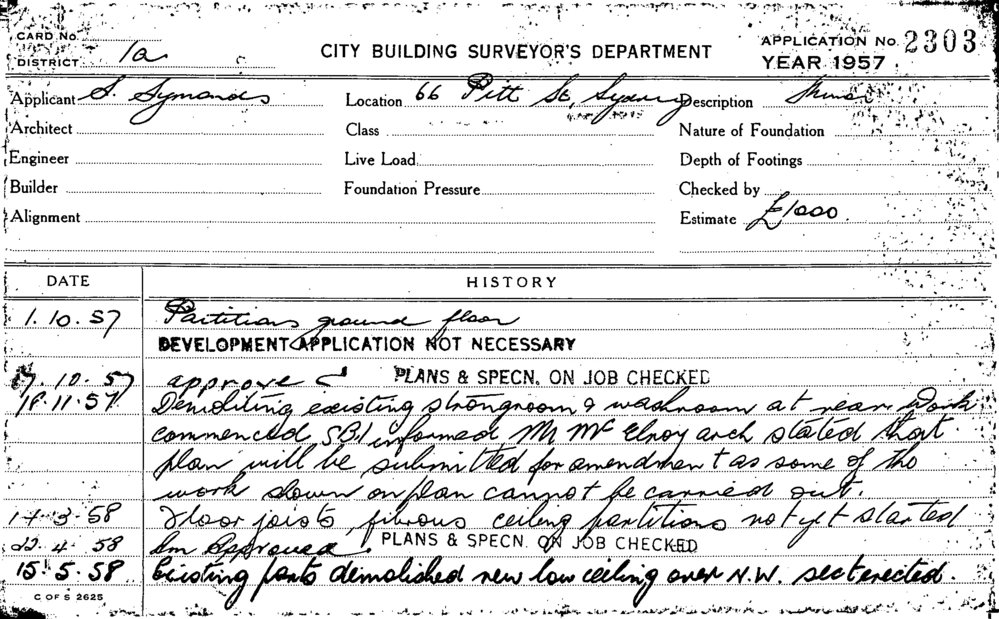 CARD No.
DISTRICT 1a
CITY BUILDING SURVEYOR'S DEPARTMENT
APPLICATION No. 2303
YEAR 1957
Applicant S. Symonds
Location 66 Pitt St, Sydney
Description
Architect
Class
Nature of Foundation
Engineer
Live Load
Depth of Footings
Builder
Foundation Pressure
Checked by
Alignment
Estimate £1000
DATE
HISTORY
1.10.57 Partitions ground floor
DEVELOPMENT APPLICATION NOT NECESSARY
10.57 approve PLANS & SPECN. ON JOB CHECKED
18.11.57 Demoliting existing strongroom & washroom at rear. Work
commenced, SBI informed Mr McElroy arch stated that
plan will be submitted for amendment as some of the
work shown on plan cannot be carried out.
3.58 Floor joists, fibrous ceiling partitions not yet started
22.4.58 Am Approved. PLANS & SPECN. ON JOB CHECKED
15.5.58 Existing parts demolished new low ceiling over N.W. sect erected.
C OF S 2625